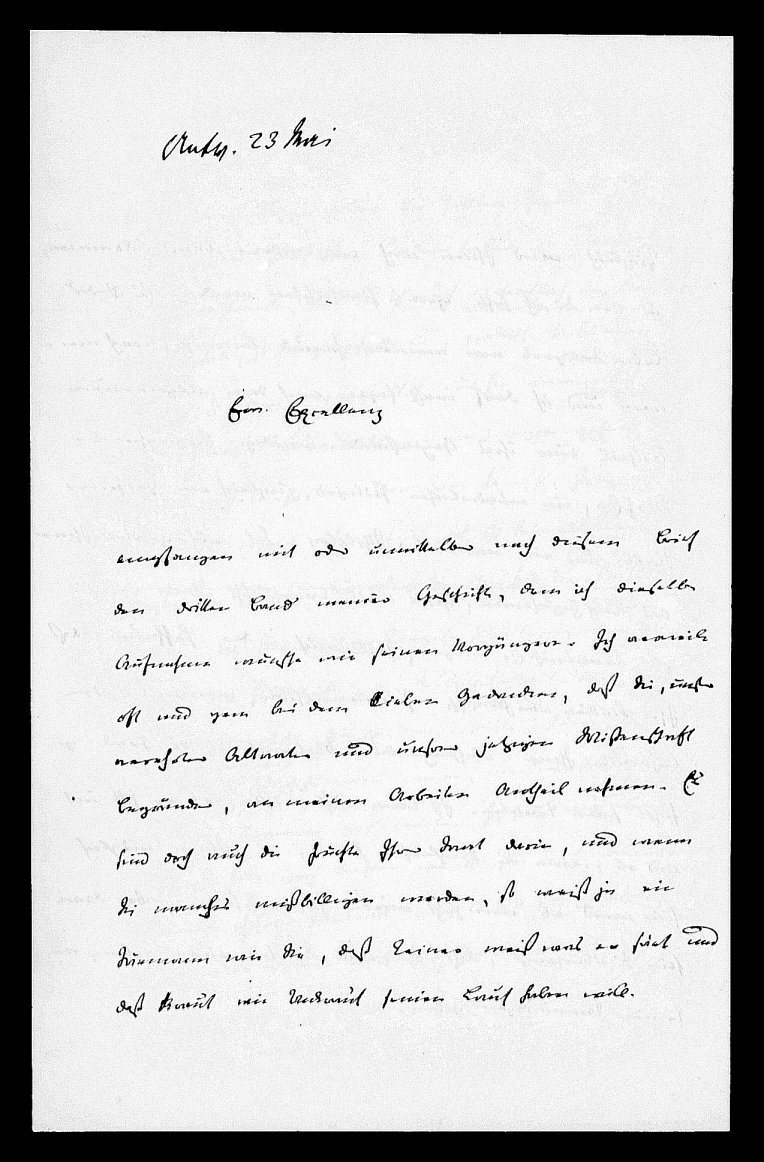 Antw. 23 Mai
Ew. Excellenz
empfangen mit oder unmittelbar nach diesem Brief
den dritten Band meiner Geschichte, dem ich dieselbe
Aufnahme wünsche wie seinen Vorgängern. Ich verweile
oft und gern bei dem lieben Gedanken, daß Sie, unser
verehrter Altvater und unserer jetzigen Wissenschaft
Begründer, an meinen Arbeiten Antheil nehmen. Es
sind doch auch die Früchte Ihrer Saat darin, und wenn
Sie manches mißbilligen werden, so weiß ja ein
Säemann wie Sie, daß Keiner weiß was er säet und
daß Kraut wie Unkraut seinen Lauf haben will.